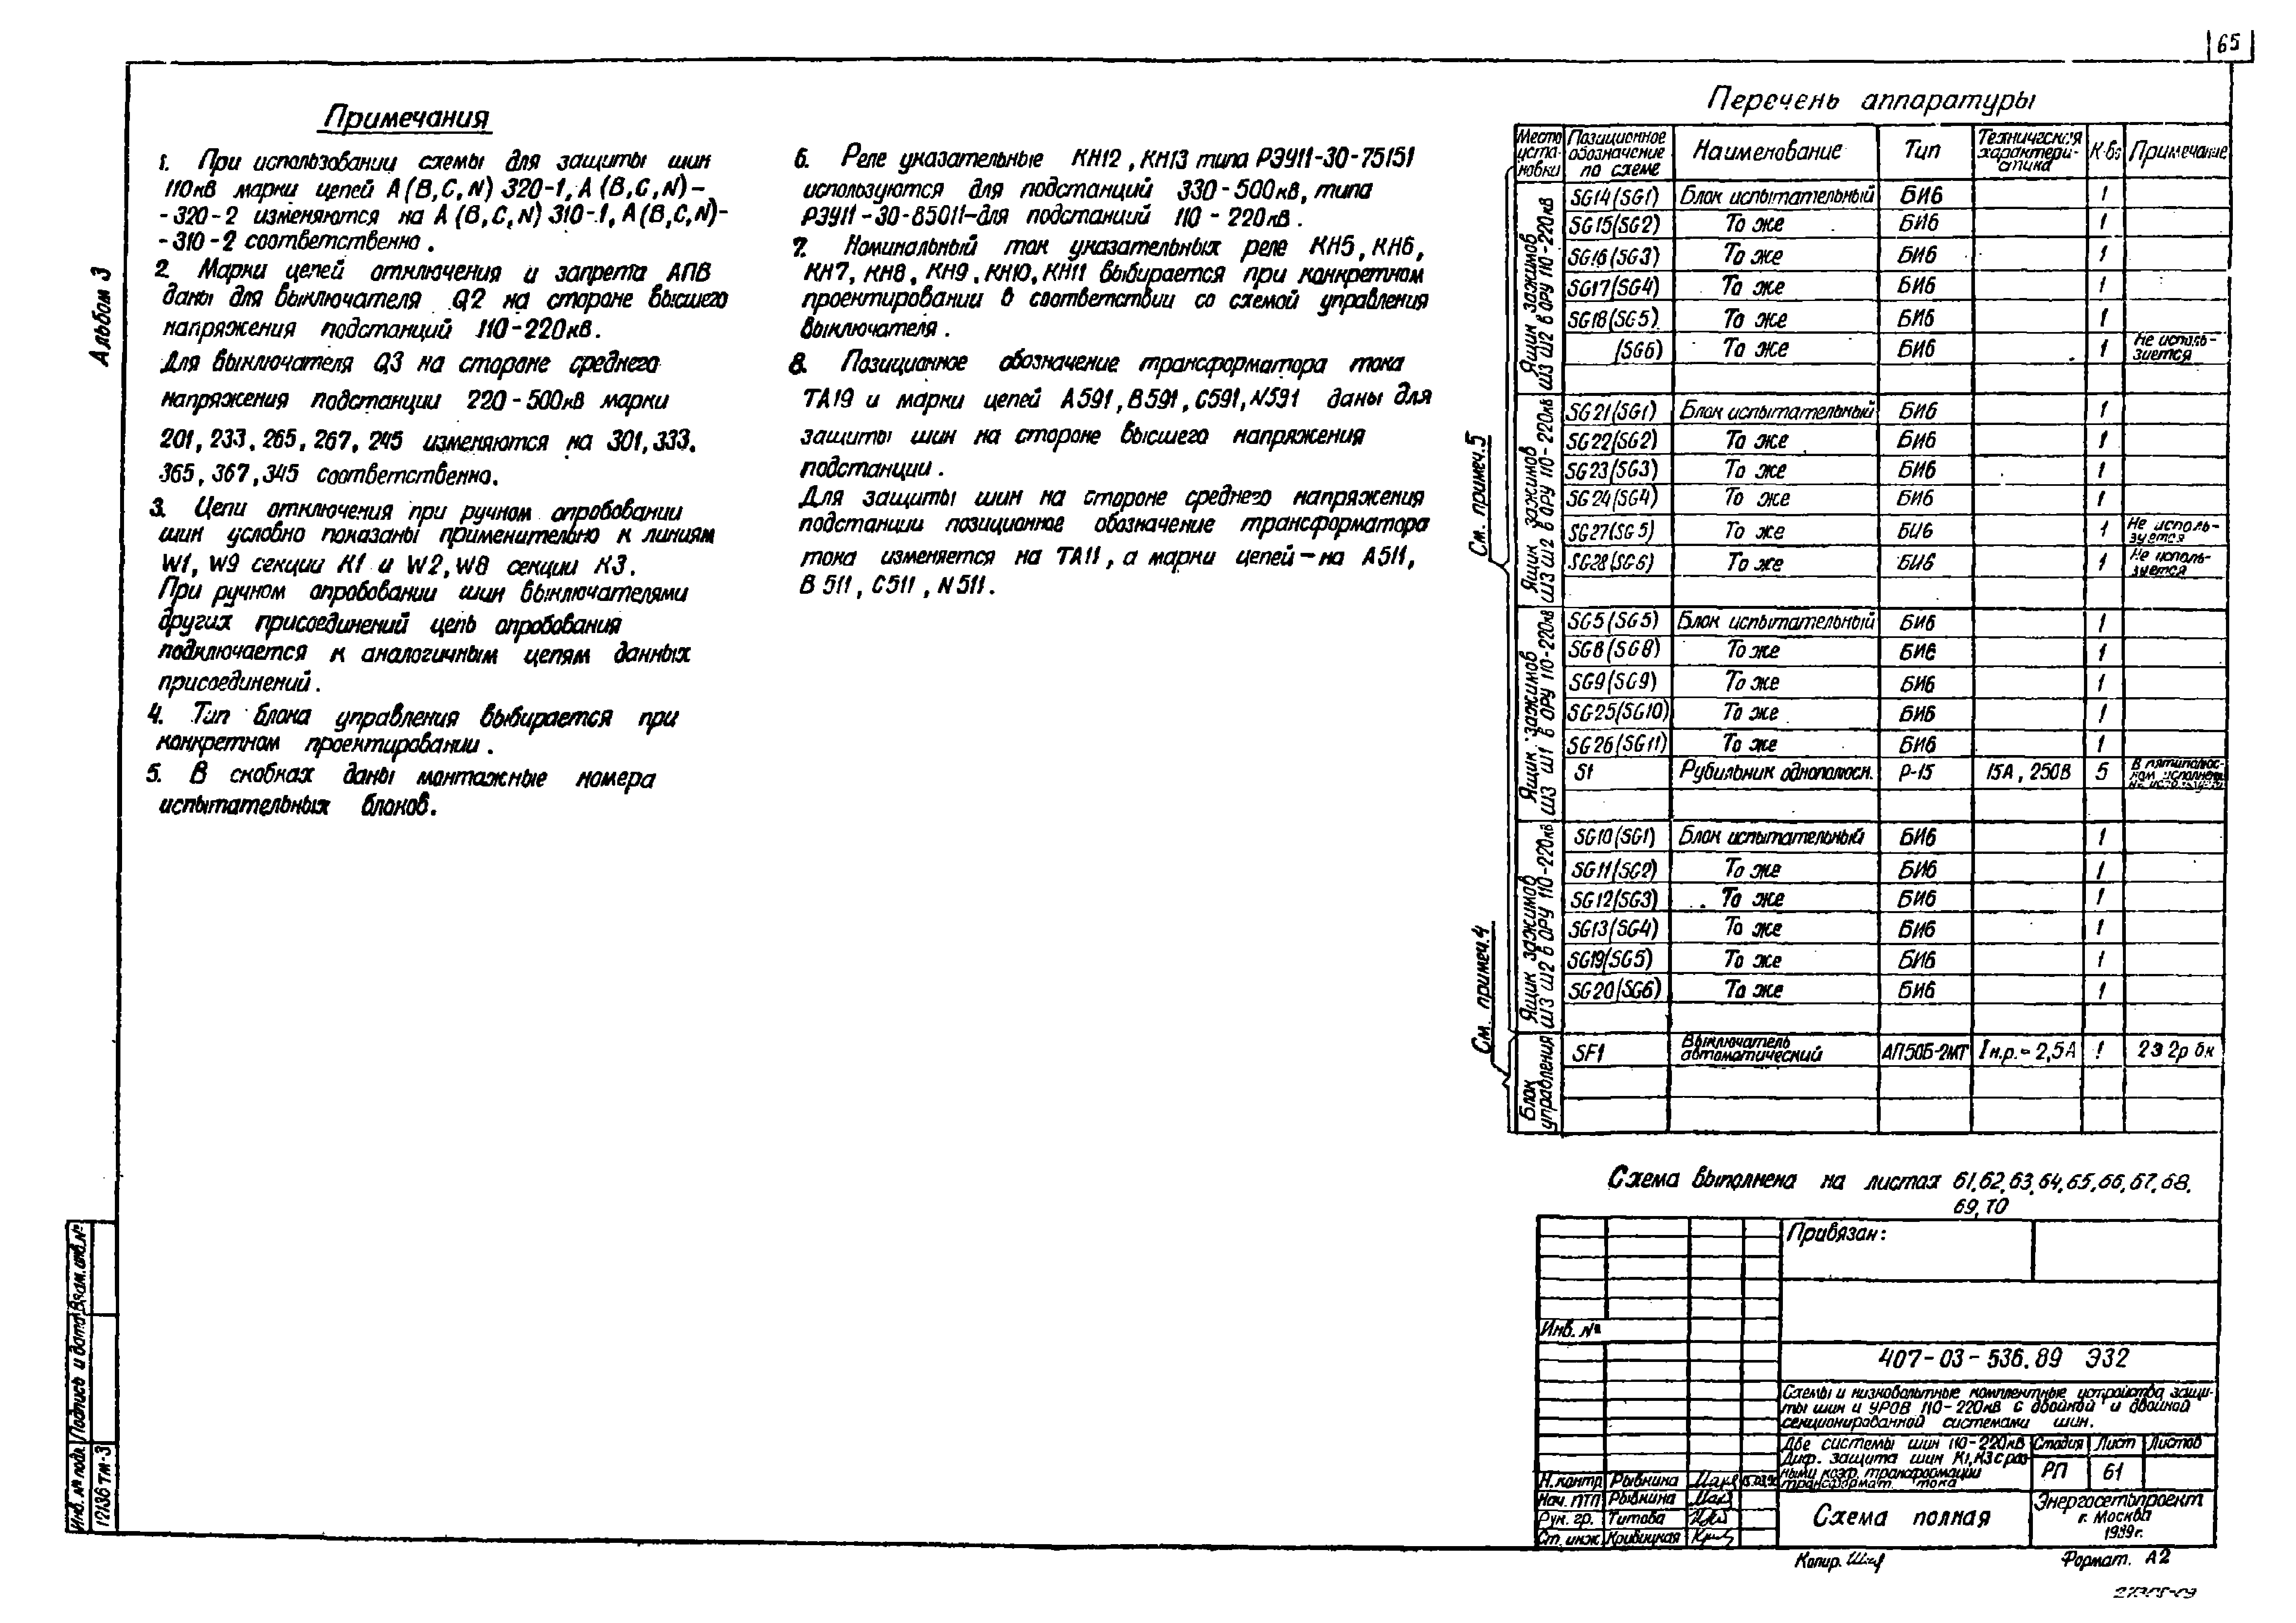 65
Альбом 3
Примечания
1. При использовании схемы для защиты шин
110кВ марки цепей А(В,С,N) 320-1, А(В,С,N)-
-320-2 изменяются на А(В,С,N) 310-1, А(В,С,N)-
-310-2 соответственно.
2. Марки цепей отключения и запрета АПВ
даны для выключателя Q2 на стороне высшего
напряжения подстанций 110-220кВ.
Для выключателя Q3 на стороне среднего
напряжения подстанции 220-500кВ марки
201, 233, 265, 267, 245 изменяются на 301, 333,
365, 367, 345 соответственно.
3. Цепи отключения при ручном опробовании
шин условно показаны применительно к линиям
W1, W9 секции К1 и W2, W8 секции К3.
При ручном опробовании шин выключателями
других присоединений цепь опробования
подключается к аналогичным цепям данных
присоединений.
4. Тип блока управления выбирается при
конкретном проектировании.
5. В скобках даны монтажные номера
испытательных блоков.
6. Реле указательные КН12, КН13 типа РЭУ11-30-75151
используются для подстанций 330-500кВ, типа
РЭУ11-30-85011-для подстанций 110-220кВ.
7. Номинальный ток указательных реле КН5, КН6,
КН7, КН8, КН9, КН10, КН11 выбирается при конкретном
проектировании в соответствии со схемой управления
выключателя.
8. Позиционное обозначение трансформатора тока
ТА19 и марки цепей А591, В591, С591, N591 даны для
защиты шин на стороне высшего напряжения
подстанции.
Для защиты шин на стороне среднего напряжения
подстанции позиционное обозначение трансформатора
тока изменяется на ТА11, а марки цепей-на А511,
В511, С511, N511.
Перечень аппаратуры
Место уста-новки Позиционное обозначение по схеме Наименование Тип Техническая характери-стика К-во Примечание
См. примеч.5
Ящик зажимов ШЗ Ш2 в ОРУ 110-220кВ
SG14(SG1) Блок испытательный БИ6 1
SG15(SG2) То же БИ6 1
SG16(SG3) То же БИ6 1
SG17(SG4) То же БИ6 1
SG18(SG5) То же БИ6 1
(SG6) То же БИ6 1 Не исполь-зуется
Ящик зажимов ШЗ Ш2 в ОРУ 110-220кВ
SG21(SG1) Блок испытательный БИ6 1
SG22(SG2) То же БИ6 1
SG23(SG3) То же БИ6 1
SG24(SG4) То же БИ6 1
SG27(SG5) То же БИ6 1 Не исполь-зуется
SG28(SG6) То же БИ6 1 Не исполь-зуется
Ящик зажимов ШЗ Ш1 в ОРУ 110-220кВ
SG5(SG5) Блок испытательный БИ6 1
SG8(SG8) То же БИ6 1
SG9(SG9) То же БИ6 1
SG25(SG10) То же БИ6 1
SG26(SG11) То же БИ6 1
S1 Рубильник однополюсн. Р-15 15А, 250В 5 В пятиполюс-ном исполнен.
Ящик зажимов ШЗ Ш2 в ОРУ 110-220кВ
SG10(SG1) Блок испытательный БИ6 1
SG11(SG2) То же БИ6 1
SG12(SG3) То же БИ6 1
SG13(SG4) То же БИ6 1
SG19(SG5) То же БИ6 1
SG20(SG6) То же БИ6 1
См. примеч.4
Блок управления
SF1 Выключатель автоматический АП50Б-2МТ Iн.р.=2,5А 1 2з 2р бк
Схема выполнена на листах 61,62,63,64,65,66,67,68,
69,70
Привязан:
Инв. №
407-03-536.89 ЭЗ2
Схемы и низковольтные комплектные устройства защи-
ты шин и УРОВ 110-220кВ с двойной и двойной
секционированной системами шин.
Две системы шин 110-220кВ
Диф. защита шин К1,К3 с раз-
ными коэф. трансформации
трансформат. тока
Стадия Лист Листов
РП 61
Н.контр. Рывкина
Нач. ПТП Рывкина
Рук. гр. Титова
Ст. инж. Кривицкая
Схема полная
Энергосетьпроект
г. Москва
1989г.
Копир.
Формат. А2
Инв. № подл. Подпись и дата Взам. инв.№
12136тм-3